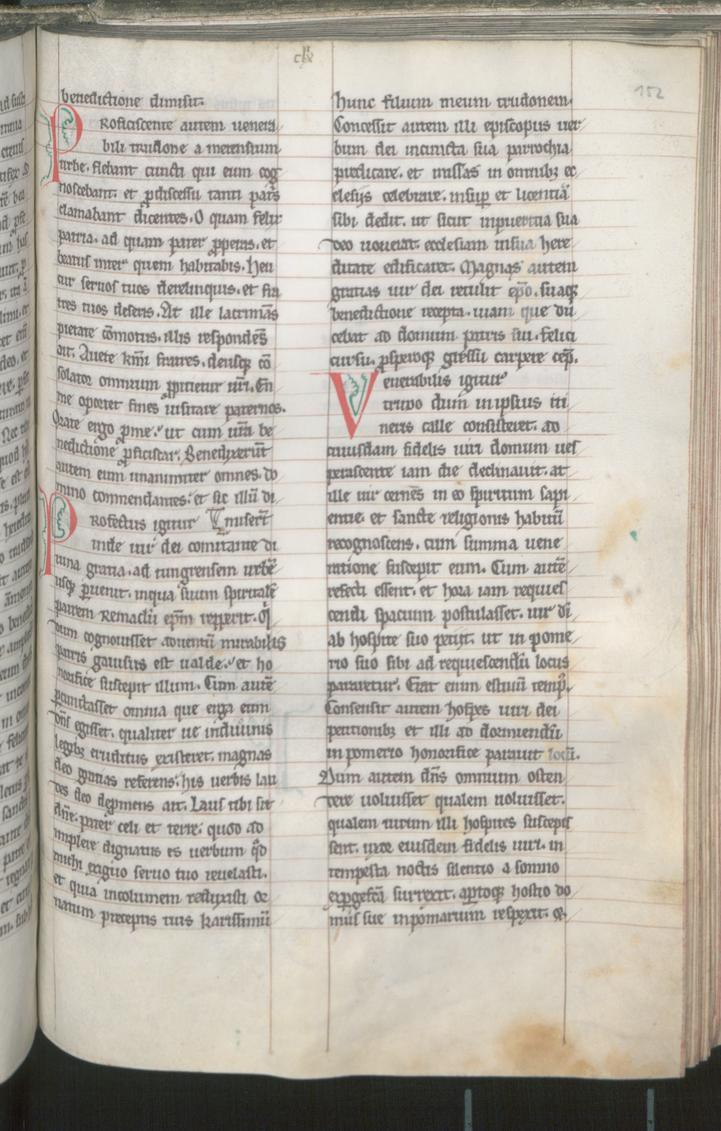 clx
152
benedictione dimisit.
Proficiscente autem venera
bili trudone a metensium
urbe. flebant cuncti qui eum cog
noscebant. et ꝓ discessu tanti pat̄s
clamabant dicentes. O quam felix
patria. ad quam pater ꝓperas. et
beatus inter quem habitabis. Heu
cur servos tuos derelinquis. et fra
tres tuos deseris. At ille lacrimas
pietate cōmotus. illis respondēs
ait. Avete km̄i fratres. deusque cō
solator omnium ꝓpitietur nr̄i. En
me oportet fines visitare paternos.
Orate ergo ꝓ me. ut cum vr̄a be
nedictione ꝓficiscar. Benedixerūt
autem eum unanimiter omnes. do
mino commendantes. et sic illū di
Profectus igitur miserūt
inde vir dei comitante di
vina gratia. ad tungrensem urbē
usqꝫ ꝑvenit. in qua suum spiritalē
patrem Remaclū ep̄m repperit. Qi
dum cognovisset adventū mirabilis
patris gavisus est valde. et ho
norifice suscepit illum. Cum autē
ꝑcunctasset omnia que erga eum
dn̄s egisset. qualiter ve divinis
legibꝫ eruditus existeret. magnas
deo gratias referens. his verbis lau
des deo depmens ait. Laus tibi sit
dn̄e. pater celi et terre. quod ad
implere dignatus es verbum qd̄
michi exiguo servo tuo revelasti.
et quia incolumem reduxisti or
natum preceptis tuis karissimū
hunc filium meum trudonem.
Concessit autem illi episcopus ver
bum dei in cuncta sua parrochia
predicare. et missas in omnibꝫ ec
clesiis celebrare. insuꝑ et licentiā
sibi dedit. ut sicut in pueritia sua
deo voverat. ecclesiam in sua here
ditate edificaret. Magnas autem
gratias vir dei retulit ep̄o. suaqꝫ
benedictione recepta. viam que du
cebat ad domum patris sui. felici
cursu. ꝓsperoqꝫ gressu carpere cep̄.
Venerabilis igitur
trudo dum in ipsius iti
neris calle consisteret. ad
cuiusdam fidelis viri domum ves
perascente iam die declinavit. at
ille vir cernēs in eo spiritum sapi
entie. et sancte religionis habitū
recognoscens. cum summa vene
ratione suscepit eum. Cum autē
refecti essent. et hora iam requies
cendi spacium postulasset. vir dī
ab hospite suo petiit. ut in pome
rio suo sibi ad requiescendū locus
pararetur. Erat enim estivū temp᷒.
Consensit autem hospes viri dei
petitionibꝫ et illi ad dormiendū
in pomerio honorifice paravit locū.
Dum autem dn̄s omnium osten
dere voluisset qualem voluisset.
qualem virum illi hospites suscepis
sent. uxor eiusdem fidelis viri. in
tempesta noctis silentio a somno
exꝑgefcā surrexit. aꝑtoqꝫ hostio do
mus sue in pomarium respexit. &